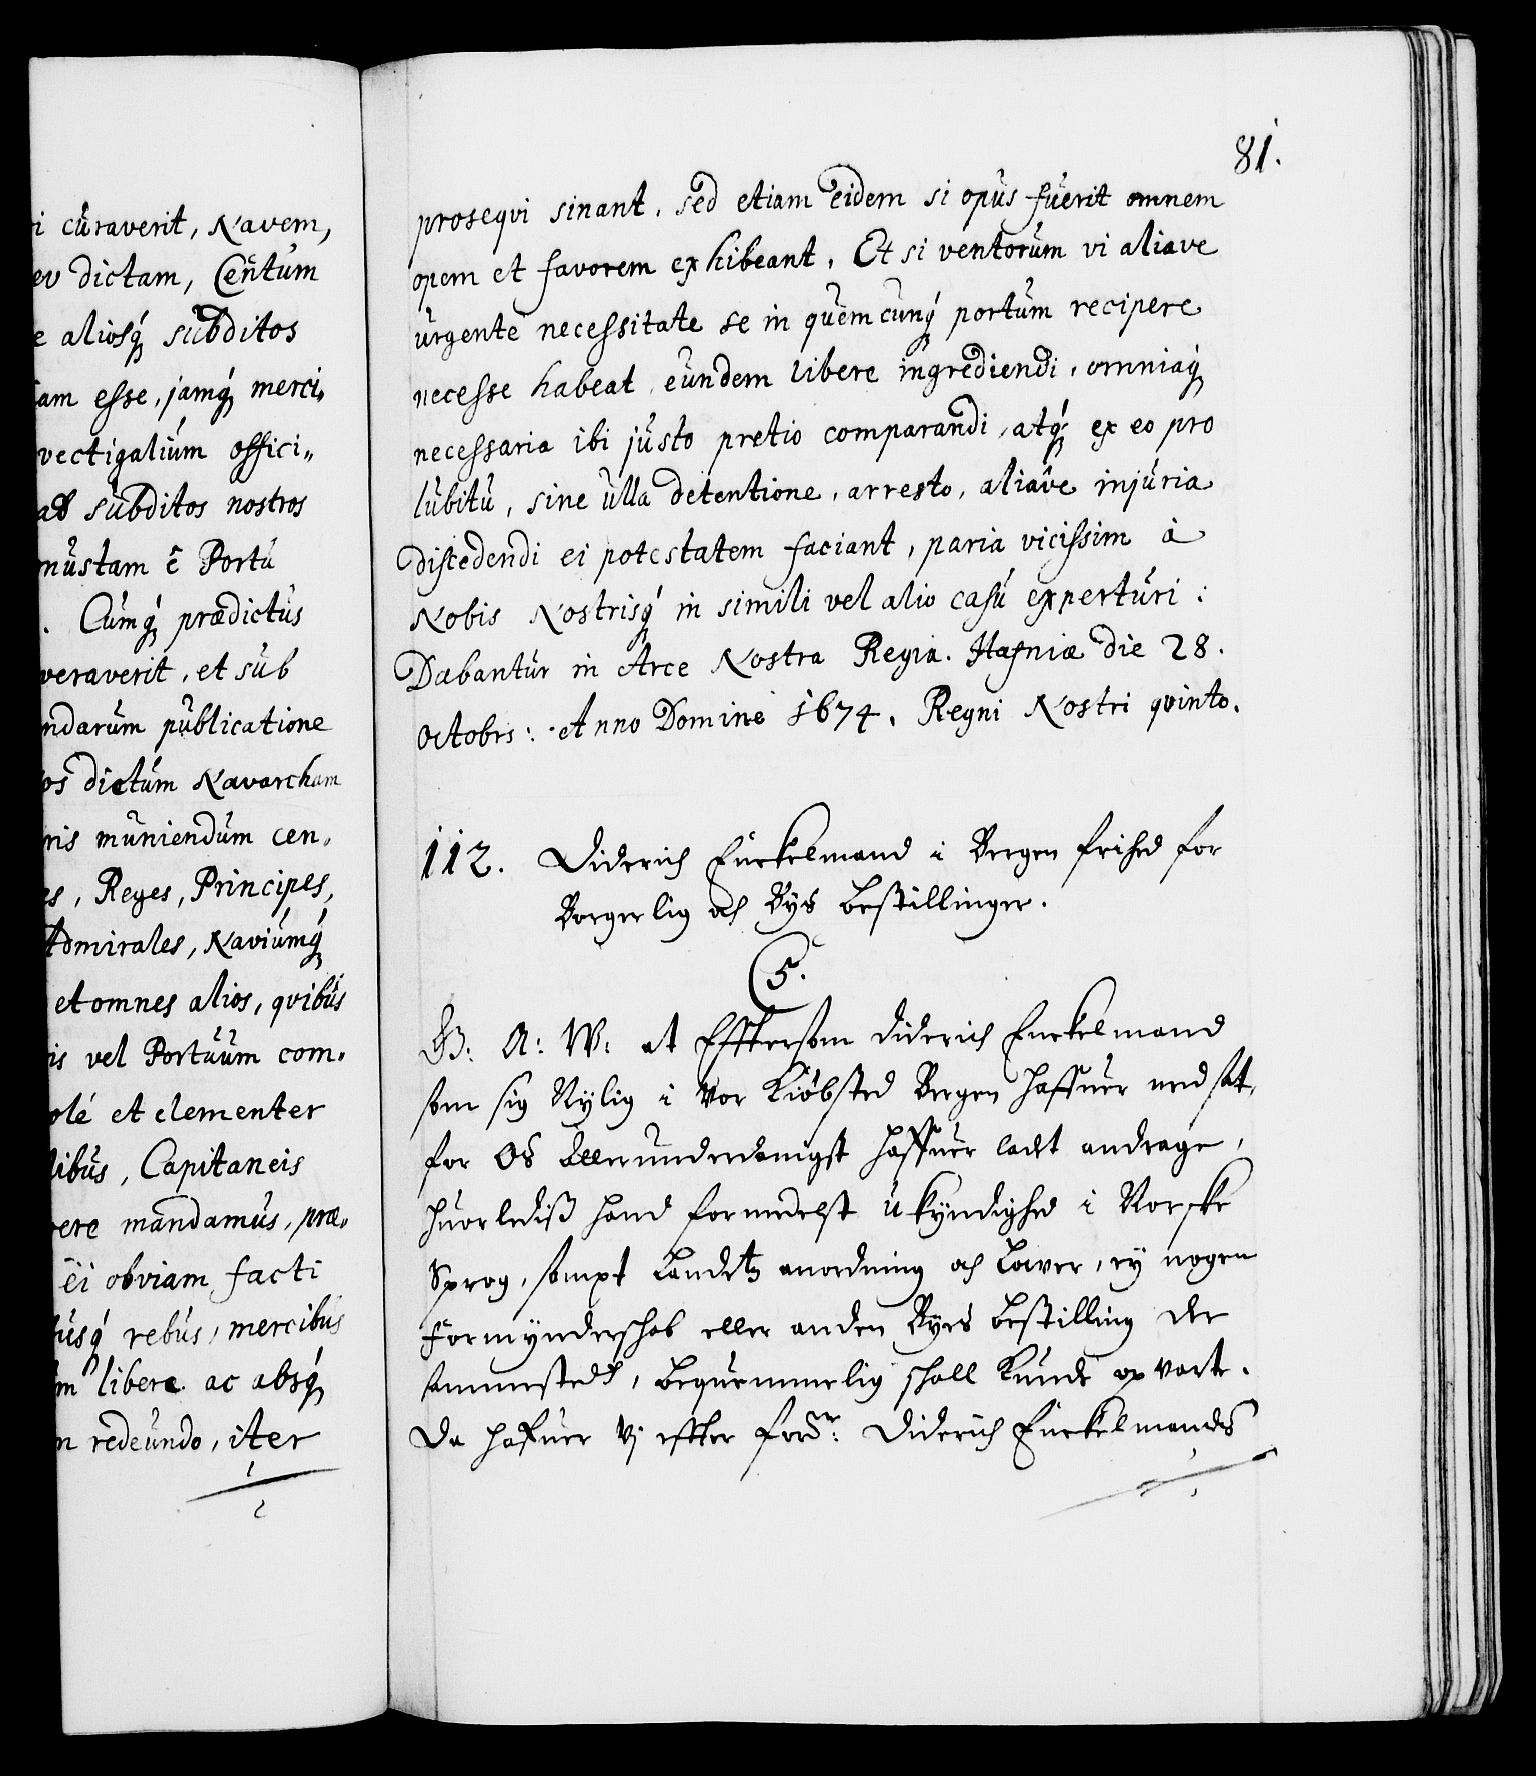 i curaverit, Navem,
ev dictam, Centum
e aliosq́ subditos
iam esse, jamq́ merci„
vectigalium offici„
ad subditos nostros
nustam ê Portu
. Cumq́ prædictus
veraverit, et sub
ndarum publicatione
os dictum Navarcham
ris muniendum cen„
es, Reges, Principes,
Admirales, Naviumq́
et omnes alios, qvibus
is vel Portuum com„
olé et clementer
libus, Capitaneis
ere mandamus, præ„
ei obviam facti
usq́ rebus, mercibus
m libere ac absq́
n redeundo, iter
81.
proseqvi sinant, sed etiam eidem si opus fuerit omnem
opem et favorem exhibeant. Et si ventorum vi aliave
urgente necessitate se in quemcunq́ portum recipere
necesse habeat eundem libere ingrediendi, omniaq́
necessaria ibi justo pretio comparandi, atq́ ex eo pro
lubitu, sine ulla detentione, arresto, aliave injuria
discedendi ei potestatem faciant, paria vicissim à
Nobis Nostrisq́ in simili vel alio casu experturi:
Dabantur in Arce Nostra Regia. Hafniæ die 28.
Octobrs: Anno Domine 1674. Regni Nostri qvinto.
112. Diderich Enckelmand i Bergen frihed for
Borgerlig och Byes bestillinger.
C 5.
G: A: W: at Effttersom Diderich Enckelmand
som sig Nylig i Vor Kiöbsted Bergen haffuer ned sat,
for Os Allerunderdanigst haffuer ladt andrage,
huorlediß hand formedelst Ukyndighed i Norske
Sprog, sampt Landetz anordning och Lower, ey nogen
Formynderschab eller anden Byes bestilling der
sammestedtz, beqvemmelig schall kunde opvarte.
Da haffuer Vj effter ford.r: Diderich Enckelmands